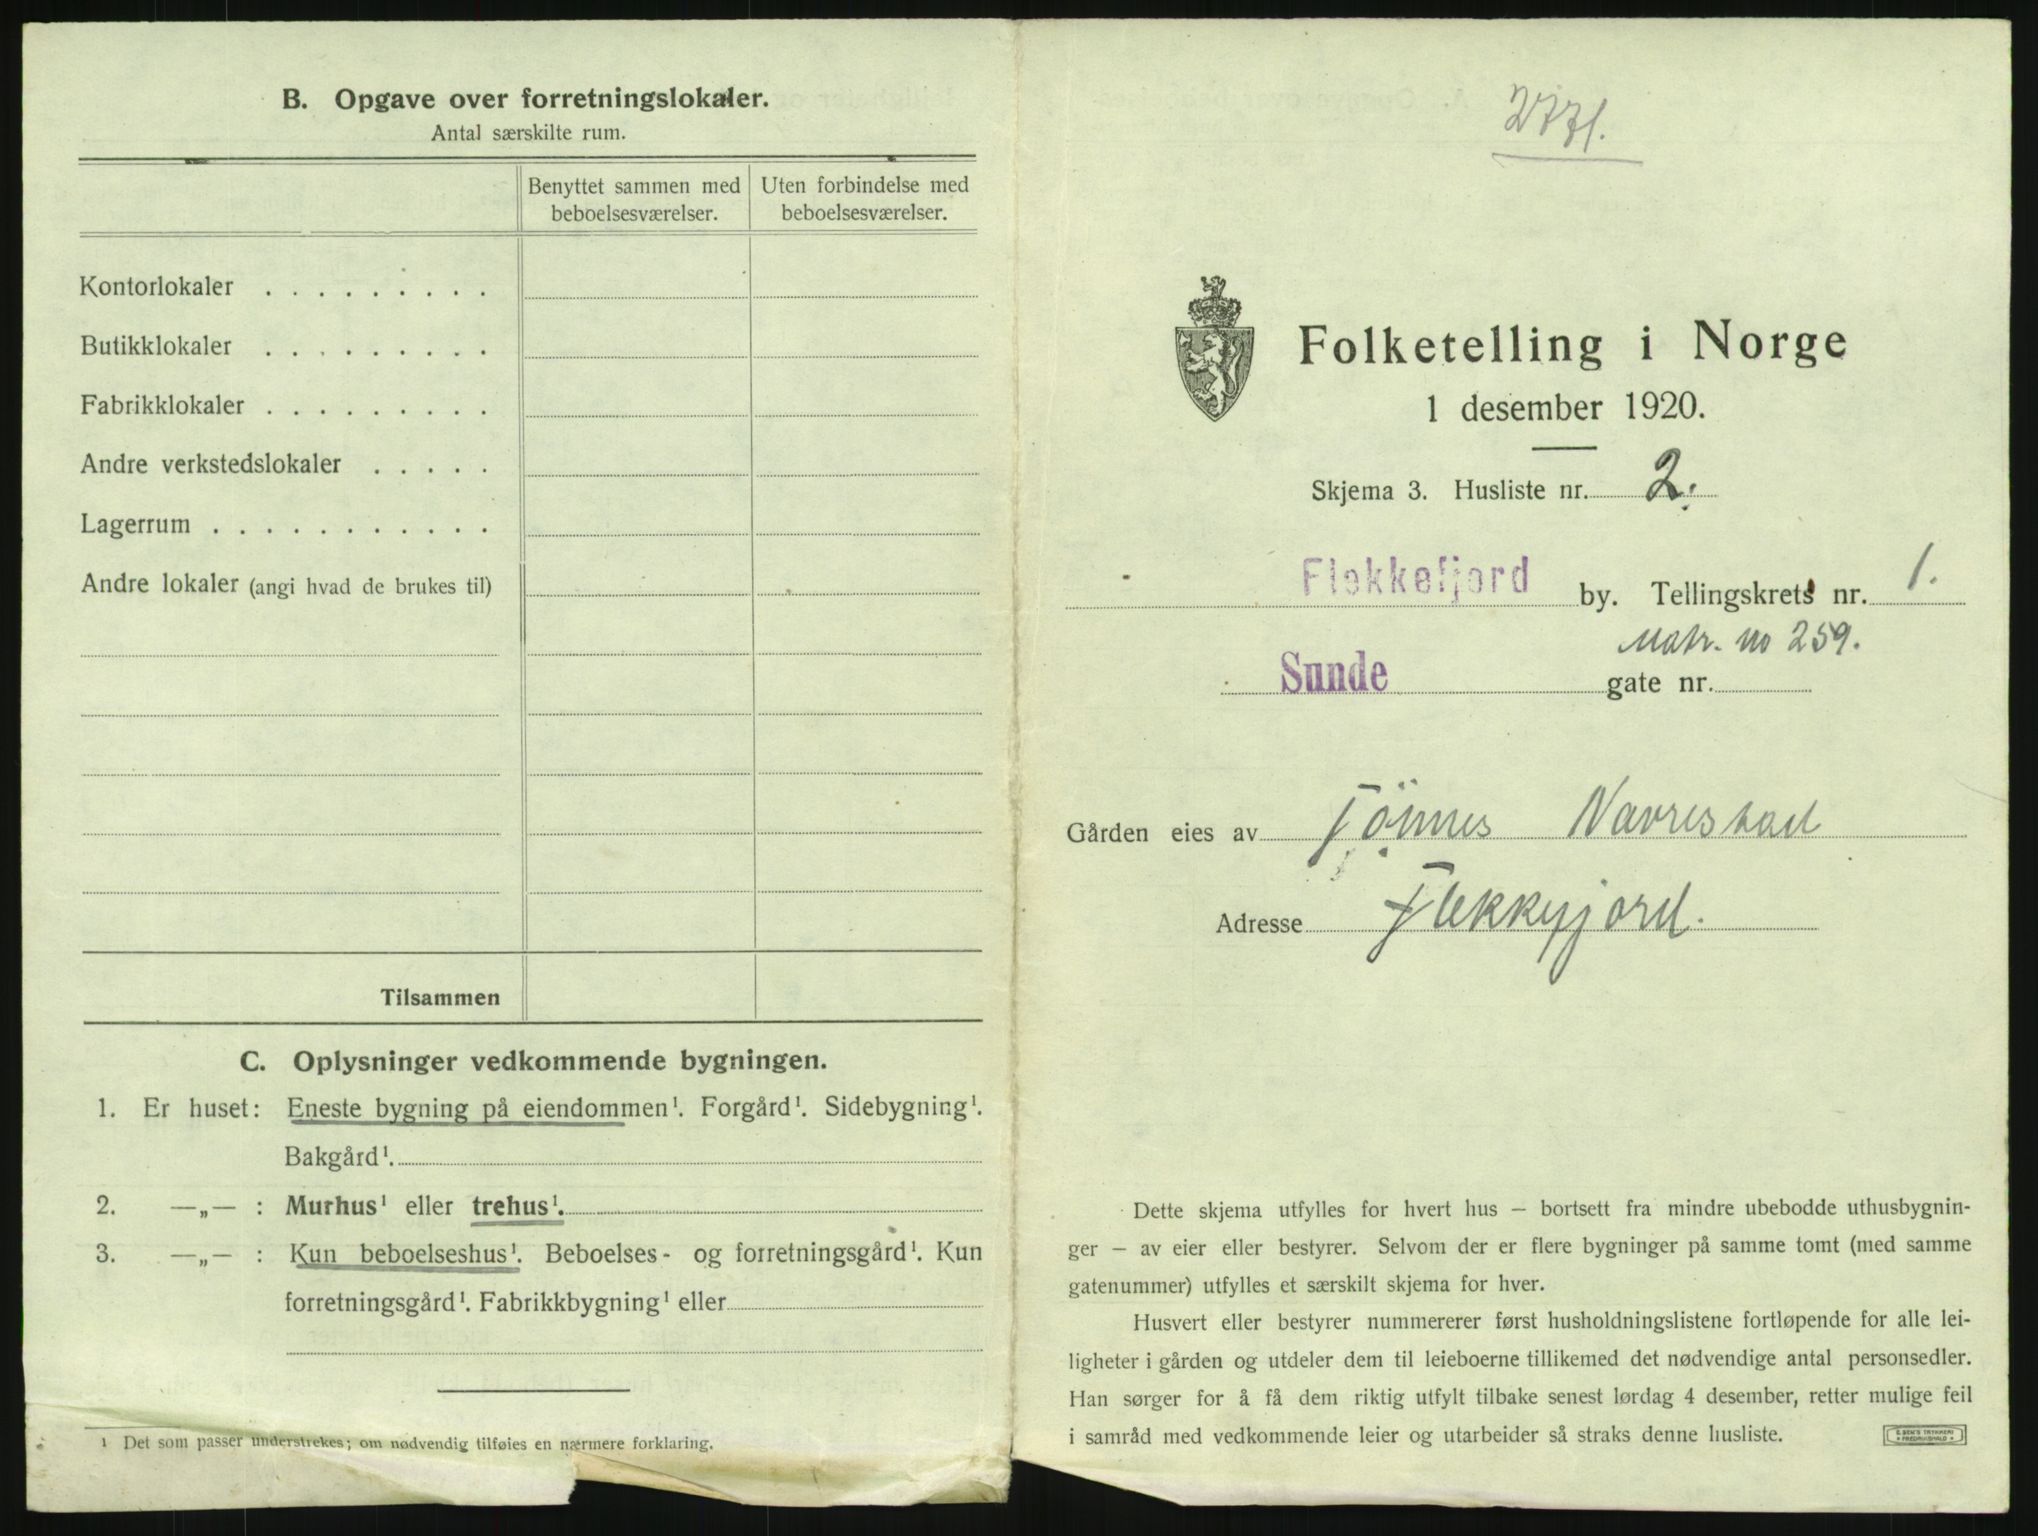 B. Opgave over forretningslokaler.
Antal særskilte rum.
Benyttet sammen med beboelsesværelser.
Uten forbindelse med beboelsesværelser.
Kontorlokaler . . . . . . . . .
Butikklokaler . . . . . . . . .
Fabrikklokaler . . . . . . . . .
Andre verkstedslokaler . . . . .
Lagerrum . . . . . . . . . . .
Andre lokaler (angi hvad de brukes til)
Tilsammen
C. Oplysninger vedkommende bygningen.
1. Er huset: Eneste bygning på eiendommen¹. Forgård¹. Sidebygning¹.
Bakgård¹.
2. —„— : Murhus¹ eller trehus¹.
3. —„— : Kun beboelseshus¹. Beboelses- og forretningsgård¹. Kun
forretningsgård¹. Fabrikkbygning¹ eller
¹ Det som passer understrekes; om nødvendig tilføies en nærmere forklaring.
Folketelling i Norge
1 desember 1920.
Skjema 3. Husliste nr. 2.
Flekkefjord by. Tellingskrets nr. 1.
Matr. no 259.
Sunde gate nr.
Gården eies av Tönnes Navrestad
Adresse Flekkefjord.
Dette skjema utfylles for hvert hus — bortsett fra mindre ubebodde uthusbygnin-
ger — av eier eller bestyrer. Selvom der er flere bygninger på samme tomt (med samme
gatenummer) utfylles et særskilt skjema for hver.
Husvert eller bestyrer nummererer først husholdningslistene fortløpende for alle lei-
ligheter i gården og utdeler dem til leieboerne tillikemed det nødvendige antal personsedler.
Han sørger for å få dem riktig utfylt tilbake senest lørdag 4 desember, retter mulige feil
i samråd med vedkommende leier og utarbeider så straks denne husliste.